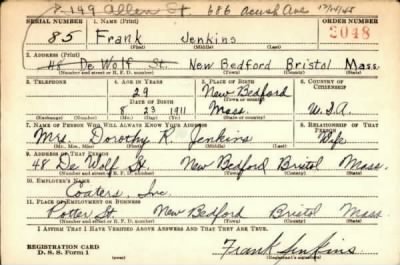 149 Allen St. 686 Acush Ave
SERIAL NUMBER 1. NAME (Print) ORDER NUMBER
85 Frank Jenkins 2048
(First) (Middle) (Last)
2. ADDRESS (Print)
48 De Wolf St. New Bedford Bristol Mass.
(Number and street or R. F. D. number) (Town) (County) (State)
3. TELEPHONE 4. AGE IN YEARS 5. PLACE OF BIRTH 6. COUNTRY OF CITIZENSHIP
29 New Bedford
DATE OF BIRTH (Town or county)
8 23 1911 Mass. U.S.A.
(Exchange) (Number) (Mo.) (Day) (Yr.) (State or country)
7. NAME OF PERSON WHO WILL ALWAYS KNOW YOUR ADDRESS 8. RELATIONSHIP OF THAT PERSON
Mrs. Dorothy K. Jenkins Wife
(Mr., Mrs., Miss) (First) (Middle) (Last)
9. ADDRESS OF THAT PERSON
48 De Wolf St New Bedford Bristol Mass.
(Number and street or R. F. D. number) (Town) (County) (State)
10. EMPLOYER'S NAME
Coaters, Inc.
11. PLACE OF EMPLOYMENT OR BUSINESS
Potter St New Bedford Bristol Mass
(Number and street or R. F. D. number) (Town) (County) (State)
I AFFIRM THAT I HAVE VERIFIED ABOVE ANSWERS AND THAT THEY ARE TRUE.
REGISTRATION CARD
D. S. S. Form 1 Frank Jenkins